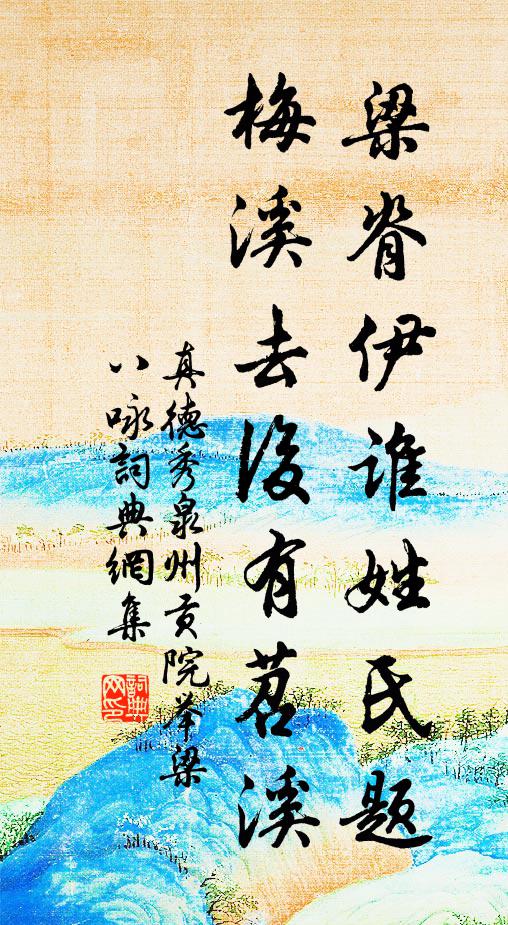 梁脊伊谁姓氏题
梅溪去後有苕溪
真德秀泉州贡院举梁
八咏詞典網集
詞典
网印